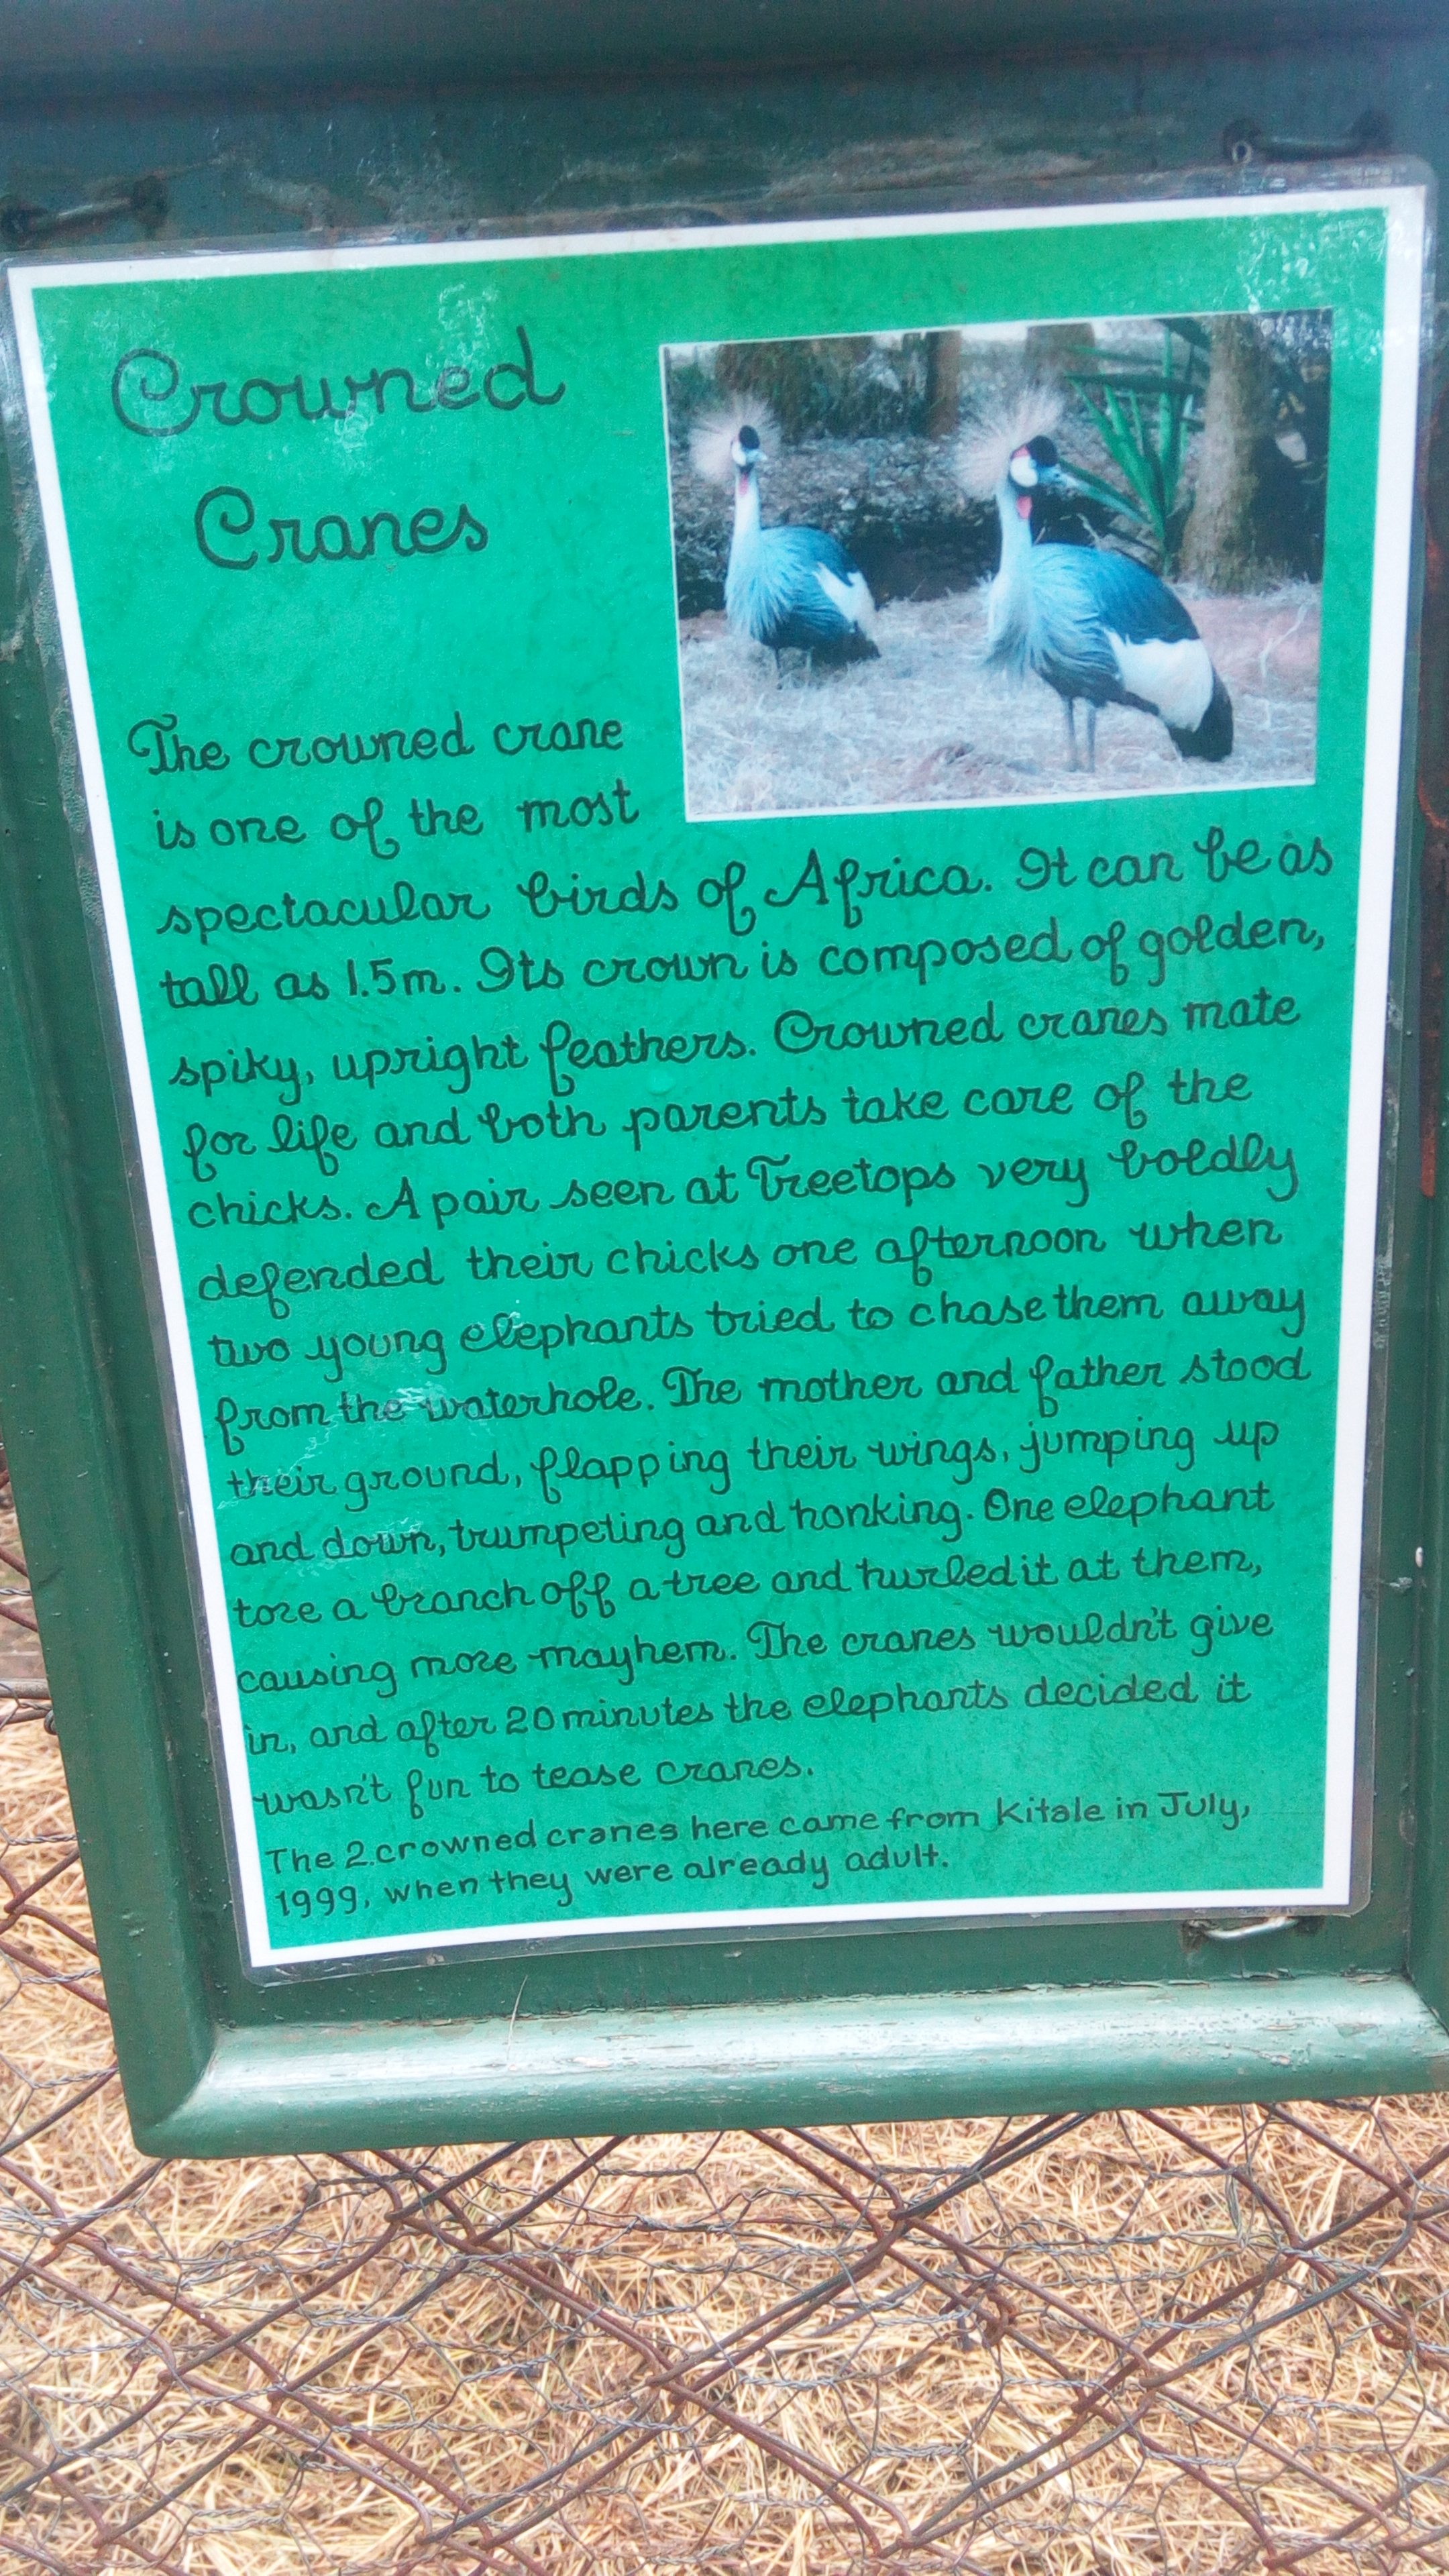 Crowned
Cranes
The crowned crane
is one of the most
spectacular birds of Africa. It can be as
tall as 1.5m. Its crown is composed of golden,
spiky, upright feathers. Crowned cranes mate
for life and both parents take care of the
chicks. A pair seen at Treetops very boldly
defended their chicks one afternoon when
two young elephants tried to chase them away
from the waterhole. The mother and father stood
their ground, flapping their wings, jumping up
and down, trumpeting and honking. One elephant
tore a branch off a tree and hurled it at them,
causing more mayhem. The cranes wouldn't give
in, and after 20 minutes the elephants decided it
wasn't fun to tease cranes.
The 2 crowned cranes here came from Kitale in July,
1999, when they were already adult.